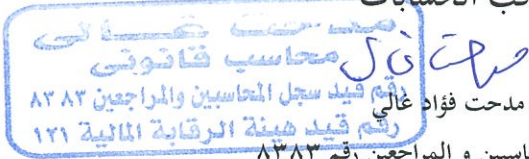 مراقب الحسابات
مدحت غالى
محاسب قانونى
رقم قيد سجل المحاسبين والمراجعين ٨٣٨٣
رقم قيد هيئة الرقابة المالية ١٢١
مدحت فؤاد غالي
المحاسبين و المراجعين رقم ٨٣٨٣